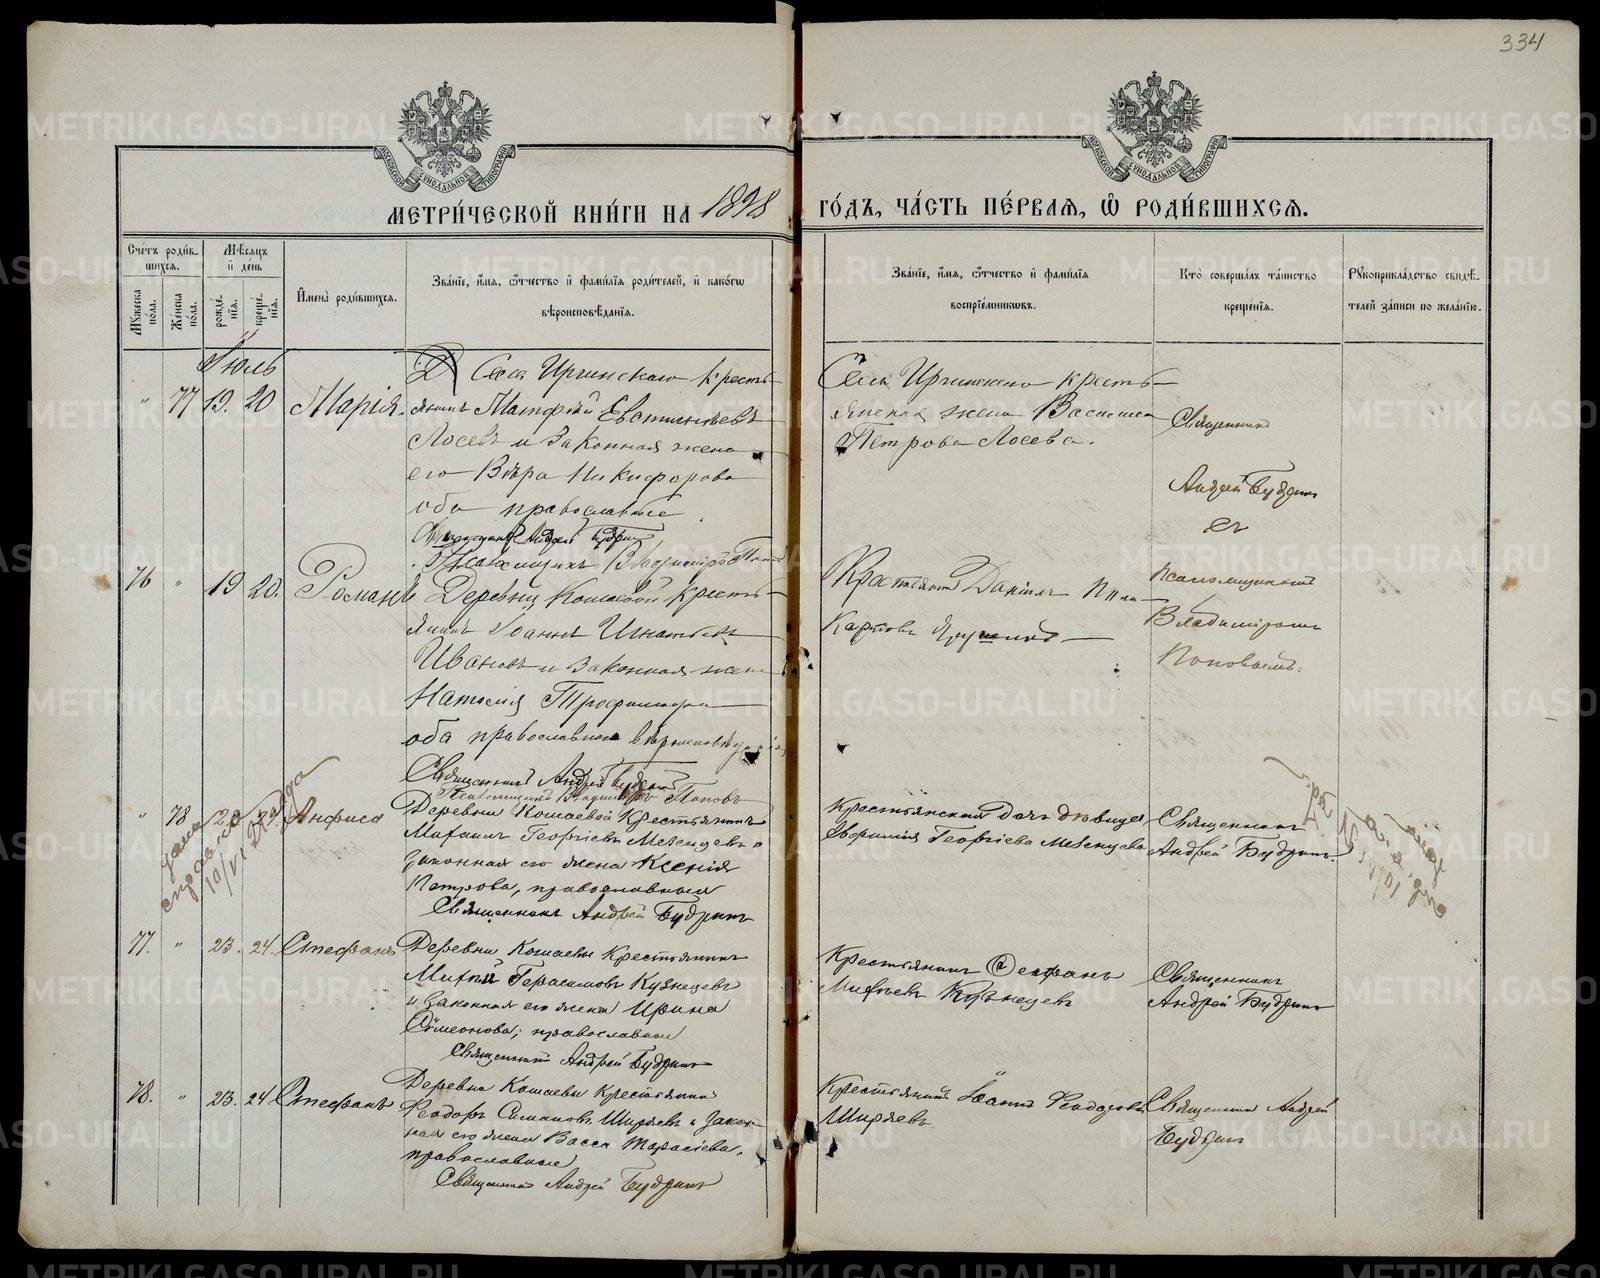 334
МОСКОВСКОЙ СѴНОДАЛЬНОЙ ТИПОГРАФІИ
МОСКОВСКОЙ СѴНОДАЛЬНОЙ ТИПОГРАФІИ
МЕТРИ́ЧЕСКОЙ КНИ́ГИ НА 1898 ГО́ДЪ, ЧА́СТЬ ПЕ́РВАЯ, Ѡ РОДИ́ВШИХСЯ.
Сче́тъ роди́в-
шихся.
Мꙋжеска по́ла.
Же́нска по́ла.
Мѣ́сяцъ
и҆ день
рожде́-
нїя.
креще́-
нїя.
И҆мена̀ роди́вшихся.
Зва́нїе, и҆́мя, ѻ҆́тчество и҆ фами́лїя роди́телей, и҆ како́гѡ
вѣроисповѣ́данїя.
Зва́нїе, и҆́мя, ѻ҆́тчество и҆ фами́лїя
воспрїе́мниковъ.
Кто̀ соверша́лъ та́инство
креще́нїя.
Рꙋкоприкла́дство свидѣ́-
телей за́писи по жела́нїю.
Іюль
" 77 19. 20 Марія.
Села Иргинскаго кресть-
янинъ Матфей Евстигнѣевъ
Лосевъ и законная жена
его Вѣра Никифорова
оба православные
Священникъ Андрей Будринъ
Псаломщикъ Владиміръ Попо
Села Иргинскаго кресть-
янская жена Василиса
Петрова Лосева.
Священник
Андрей Будрин
съ
псаломщикомъ
Владиміромъ
Поповымъ.
76 " 19 20. Романъ
Деревни Кошаевой кресть-
янинъ Іоаннъ Игнатьевъ
Ивановъ и законная жена
Наталія Трофимова
оба православнаго вѣроисповѣданія
Священникъ Андрей Будринъ
Псаломщикъ Владиміръ Поповъ
Крестьянинъ Даніилъ
" 78 Анфиса
Деревни Кошаевой Крестьянинъ
Михаилъ Георгіевъ Мезенцевъ и
законная его жена Ксенія
Петрова, православные
Священникъ Андрей Будринъ
Крестьянская дочь дѣвица
Евфимія Георгіева Мезенцева
Священникъ
Андрей Будринъ
дана
справка
10/VI
77. " 23. 24. Стефанъ
Деревни Кошаевы Крестьянинъ
Герасимовъ Кузнецевъ
и законная его жена Ирина
Симеонова; православные
Священникъ Андрей Будринъ
Крестьянинъ Стефанъ
Кузнецевъ
Священникъ
Андрей Будринъ
78. " 23. 24 Стефанъ
Деревни Кошаевы Крестьянинъ
Ѳеодоръ Симановъ Ширяевъ и закон-
ная его жена Васса Тарасіева,
православные
Священникъ Андрей Будринъ
Крестьянинъ Іоаннъ Ѳеодоровъ
Ширяевъ
Священникъ Андрей
Будринъ
METRIKI.GASO-URAL.RU